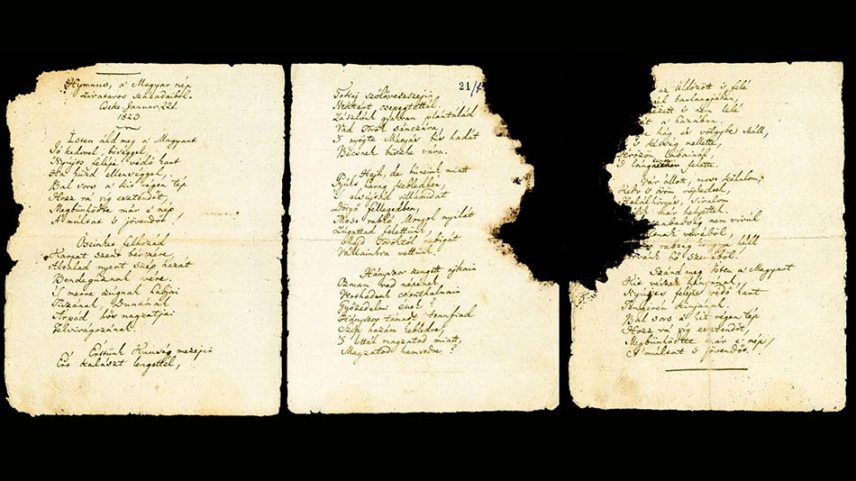 Hymnus, a' Magyar nép
zivataros századaiból.
Cseke, Januar. 22d.
1823
Isten áld meg a' Magyart
Jó kedvvel, bőséggel,
Nyújts feléje védő kart
Ha küzd ellenséggel;
Bal sors a' kit régen tép
Hozz rá víg esztendőt,
Megbünhödte már e' nép
A' multat 's jövendőt!
Őseinket felhozád
Kárpát szent bérczére,
Általad nyert szép hazát
Bendegúznak vére.
'S merre zúgnak habjai
Tiszának, Dunának,
Árpád hős magzatjai
Felvirágozának.
Értünk Kunság mezejin
Ért kalászt lengettél,
21/
Tokaj szőlővesszejin
Nektárt csepegtettél.
Zászlónk gyakran plántálád
Vad Török sánczára,
'S nyögte Mátyás bús hadát
Bécsnek büszke vára.
Hajh, de bűneink miatt
Gyúlt harag kebledben,
'S elsújtád villámidat
Dörgő fellegedben,
Most rabló Mongol nyilát
Zúgattad felettünk,
Majd Töröktől rabigát
Vállainkra vettünk.
Hányszor zengett ajkain
Ozman vad népének
Vert hadunk csonthalmain
Győzedelmi ének!
Hányszor támadt tenfiad
Szép hazám kebledre,
'S lettél magzatod miatt,
Magzatod hamvedre?
az üldözött 's felé
barlangjában,
nézett 's nem lelé
a' hazában.
hág és völgybe száll,
's kétség mellette,
Vérözön lábainál,
'S lángtenger felette.
Vár állott, most kőhalom,
Kedv 's öröm röpkedtek,
Halálhörgés, siralom
már helyettek.
szabadság nem virúl
véréből,
rabság könnye hull
hő szeméből!
Szánd meg Isten a' Magyart
Kit vészek hányának,
Nyújts feléje védő kart
Tengerén kínjának.
Bal sors a' kit régen tép
Hozz rá víg esztendőt,
Megbünhödte már e' nép
A' multat 's jövendőt!